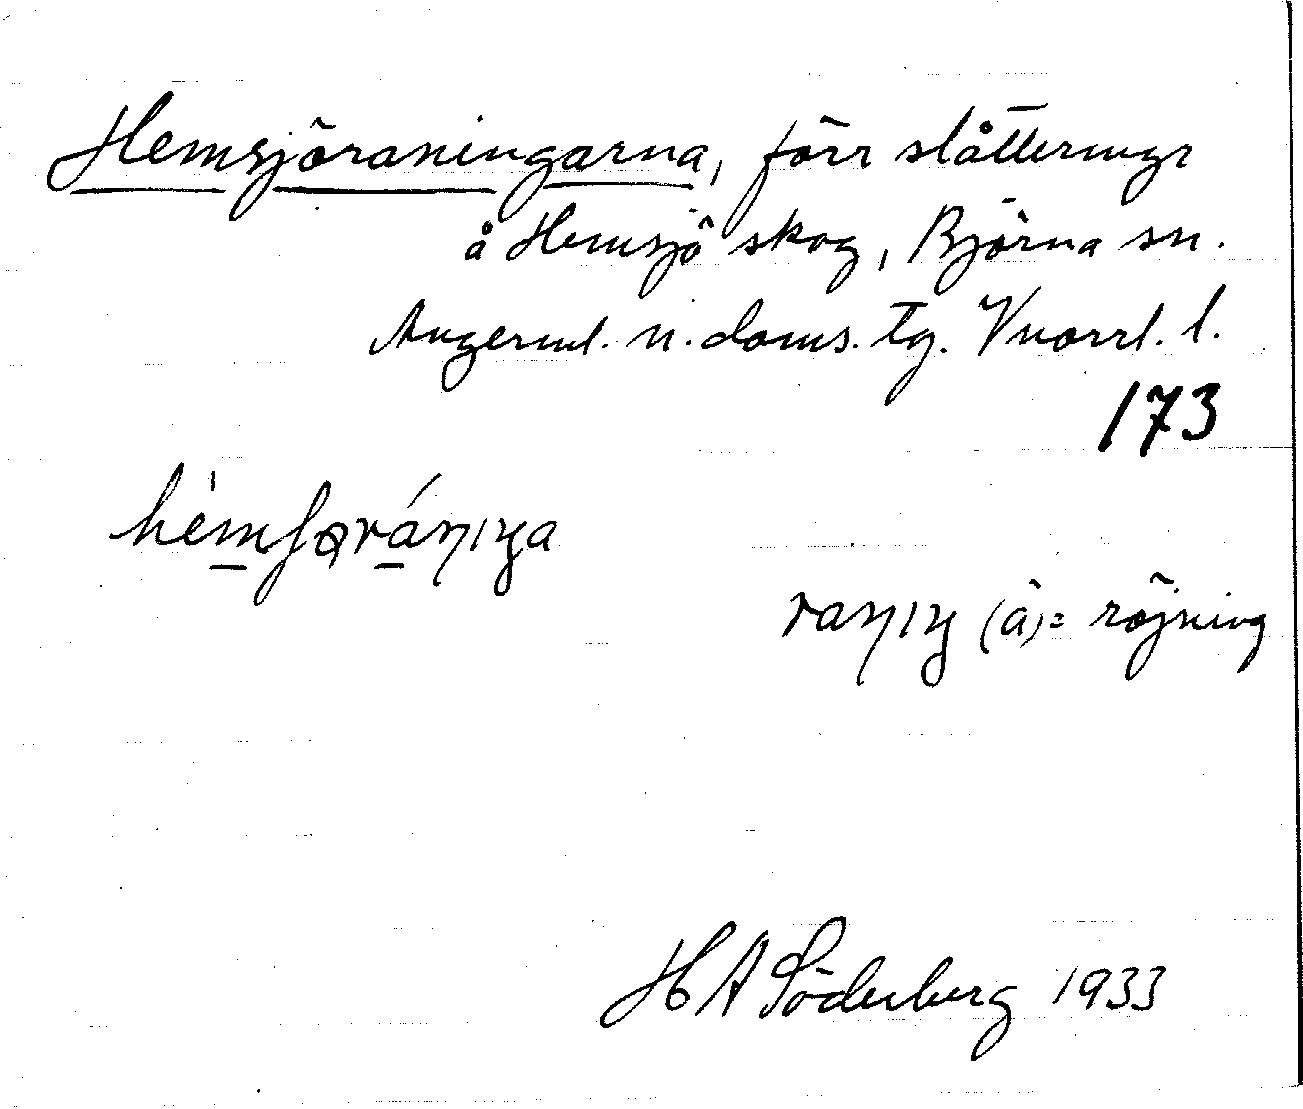 Hemsjöraningarna, förr slåtteringr
å Hemsjö skog, Björna sn.
Ångerml. n. doms. tg. Vnorrl. l.
173
raŋıŋ (à)= röjning
H A Söderberg 1933